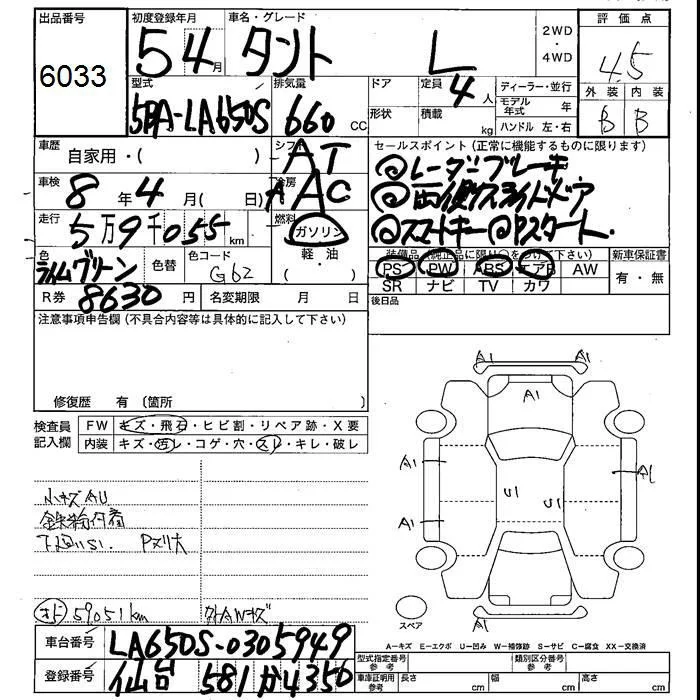 出品番号 初度登録年月 車名・グレード 2WD ・ 4WD 評価点
6033 54月 タント L 4.5
型式 排気量 ドア 定員 4人 ディーラー・並行 外装 内装
5BA-LA650S 660 cc 形状 積載 kg モデル年式 年 B B
ハンドル 左・右
車歴 自家用・( ) シフト AT セールスポイント(正常に機能するものに限ります)
◎レーダーブレーキ
車検 8年4月( 日) 冷房 AAC ◎両側スライドドア
走行 5万9千055km 燃料 ガソリン ◎スマートキー◎Pスタート
軽・油
色 ライムグリーン 色替 色コード G62 ( ) 装備品(純正品に限り○をつけ下さい) 新車保証書
PS PW ABS エアB AW 有・無
SR ナビ TV カワ
R券 8630円 名変期限 月 日 後日品
注意事項申告欄(不具合内容等は具体的に記入して下さい)
修復歴 有(箇所
検査員記入欄 FW キズ・飛石・ヒビ割・リペア跡・X要
内装 キズ・汚レ・コゲ・穴・スレ・キレ・破レ
小キズAU
鉄粉付着
下廻りSI. Pヌリ大
オド 59051km 外AWキズ
A1 A1
A1
A1 A1
U1 U1
A1
A1
スペア
A=キズ E=エクボ U=凹み W=補修跡 S=サビ C=腐食 XX=交換済
車台番号 LA650S-0305949
登録番号 仙台 581 か 4350
型式指定番号 参考 類別区分番号 参考
車庫証明用 参考 長さ cm 幅 cm 高さ cm